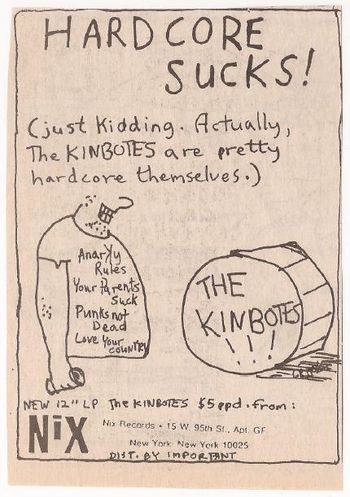 HARDCORE
SUCKS!
(just Kidding. Actually,
The KINBOTES are pretty
hardcore themselves.)
Anarky
Rules
Your Parents
Suck
Punks not
Dead
Love Your COUNTRY
THE
KINBOTES
!!!
NEW 12" LP The KINBOTES $5ppd. from:
NiX
Nix Records • 15 W. 95th St., Apt. GF
New York, New York 10025
DIST. BY IMPORTANT